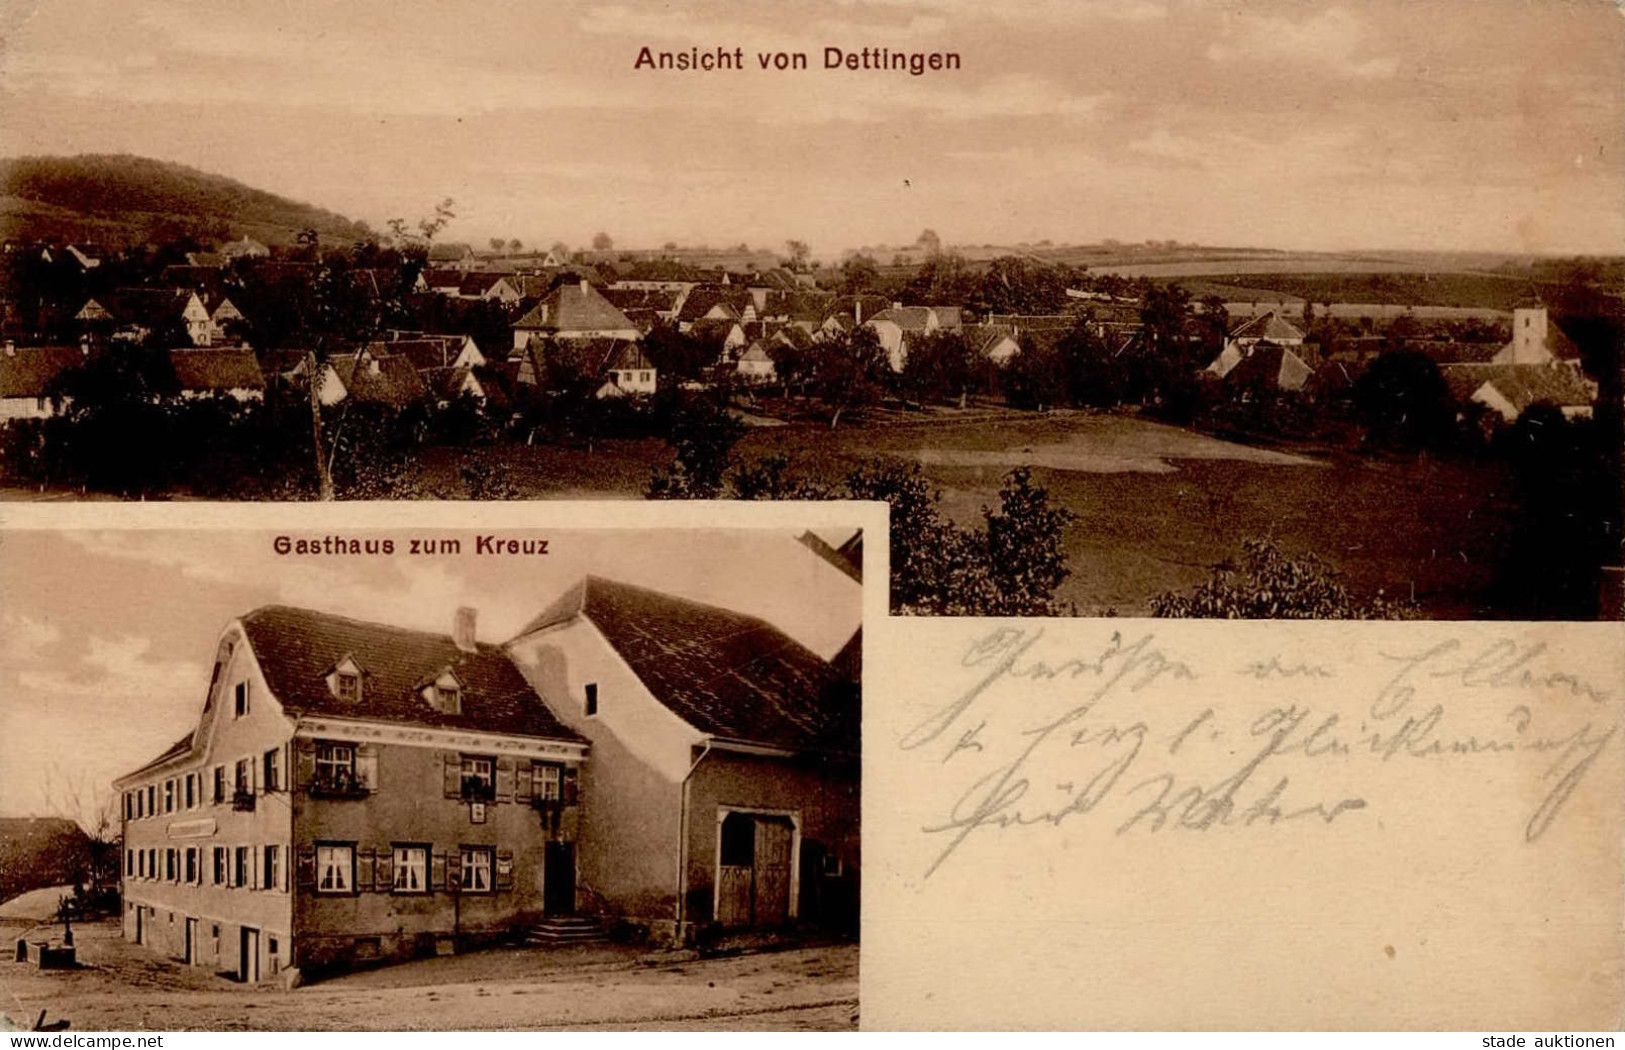 Ansicht von Dettingen
Gasthaus zum Kreuz
Grüße an Eltern
+ herzl. Glückwunsch
für Vater
delcampe.net
stade auktionen